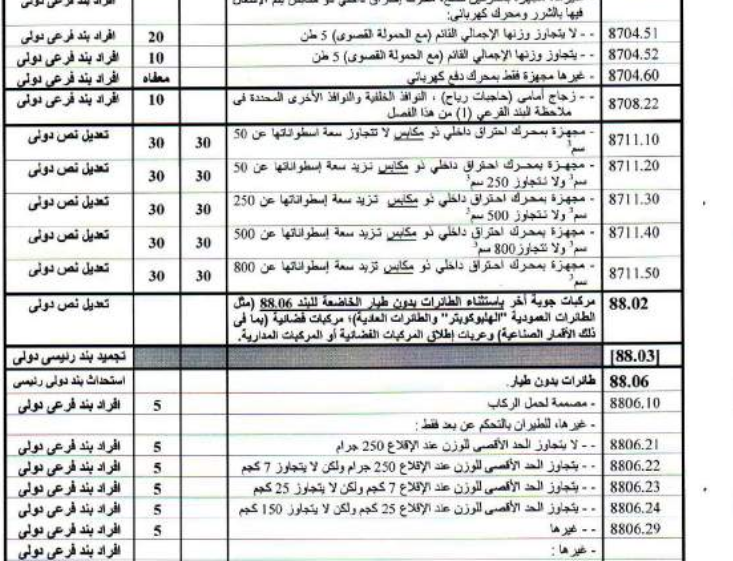 فيها بالشرر ومحرك كهربائى:
8704.51 - - لا يتجاوز وزنها الإجمالي القائم (مع الحمولة القصوى) 5 طن 20 افراد بند فرعى دولى
8704.52 - - يتجاوز وزنها الإجمالي القائم (مع الحمولة القصوى) 5 طن 10 افراد بند فرعى دولى
8704.60 - غيرها مجهزة فقط بمحرك دفع كهربائي معفاه افراد بند فرعى دولى
8708.22 - - زجاج أمامى (حاجبات رياح) ، النوافذ الخلفية والنوافذ الأخرى المحددة فى 10 افراد بند فرعى دولى
ملاحظة البند الفرعي (1) من هذا الفصل
8711.10 - مجهزة بمحرك احتراق داخلي ذو مكابس لا تتجاوز سعة اسطواناتها عن 50 30 30 تعديل نص دولى
سم3
8711.20 - مجهزة بمحرك احتراق داخلي ذو مكابس تزيد سعة إسطواناتها عن 50 30 30 تعديل نص دولى
سم3 ولا تتجاوز 250 سم3
8711.30 - مجهزة بمحرك احتراق داخلي ذو مكابس تزيد سعة إسطواناتها عن 250 30 30 تعديل نص دولى
سم3 ولا تتجاوز 500 سم3
8711.40 - مجهزة بمحرك احتراق داخلي ذو مكابس تزيد سعة إسطواناتها عن 500 30 30 تعديل نص دولى
سم3 ولا تتجاوز 800 سم3
8711.50 - مجهزة بمحرك احتراق داخلي ذو مكابس تزيد سعة إسطواناتها عن 800 30 30 تعديل نص دولى
سم3
88.02 مركبات جوية أخر باستثناء الطائرات بدون طيار الخاضعة للبند 88.06 (مثل تعديل نص دولى
الطائرات العمودية "الهليوكوبتر" والطائرات العادية)؛ مركبات فضائية (بما فى
ذلك الأقمار الصناعية) وعربات إطلاق المركبات الفضائية أو المركبات المدارية.
[88.03] تجميد بند رئيسى دولى
88.06 طائرات بدون طيار. استحداث بند دولى رئيسى
8806.10 - مصممة لحمل الركاب 5 افراد بند فرعى دولى
- غيرها، للطيران بالتحكم عن بعد فقط :
8806.21 - - لا يتجاوز الحد الأقصى للوزن عند الإقلاع 250 جرام 5 افراد بند فرعى دولى
8806.22 - - يتجاوز الحد الأقصى للوزن عند الإقلاع 250 جرام ولكن لا يتجاوز 7 كجم 5 افراد بند فرعى دولى
8806.23 - - يتجاوز الحد الأقصى للوزن عند الإقلاع 7 كجم ولكن لا يتجاوز 25 كجم 5 افراد بند فرعى دولى
8806.24 - - يتجاوز الحد الأقصى للوزن عند الإقلاع 25 كجم ولكن لا يتجاوز 150 كجم 5 افراد بند فرعى دولى
8806.29 - - غيرها 5 افراد بند فرعى دولى
- غيرها : افراد بند فرعى دولى